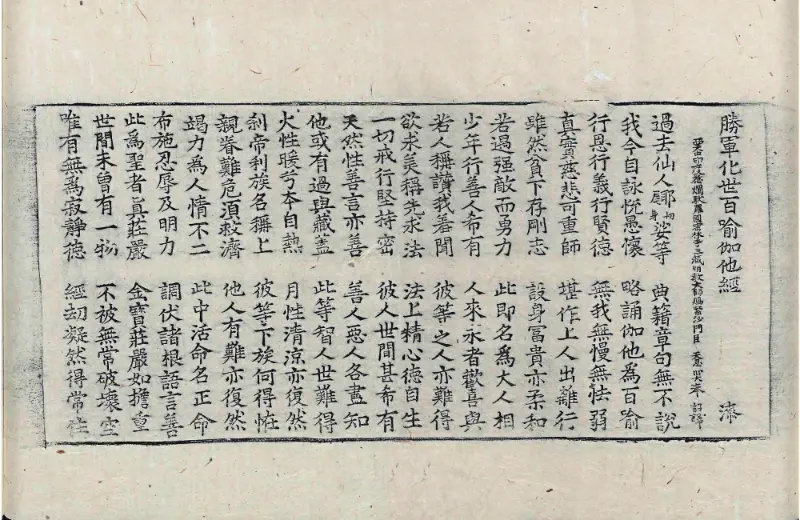 勝軍化世百喻伽他經 漆
西天北印度惹爛馱囉國密林寺三藏明教大師賜紫沙門臣 天息災奉 詔譯
過去仙人娑等 典籍章句無不說
我今自詠悅愚懷 略誦伽他為百喻
行恩行義行賢德 無我無慢無怯弱
真實慈悲可重師 堪作上人出離行
雖然貧下存剛志 設身冨貴亦柔和
若遇强敵而勇力 此即名為大人相
少年行善人希有 人來求者歡喜與
若人稱讚我善聞 彼等之人亦難得
欲求美稱先求法 法上精心德自生
一切戒行堅持密 彼人世間甚希有
天然性善言亦善 善人惡人各盡知
他或有過與藏蓋 此等智人世難得
火性暖兮本自熱 月性清涼亦復然
刹帝利族名稱上 彼等下族何得恠
親眷難危須救濟 他人有難亦復然
竭力為人情不二 此中活命名正命
布施忍辱及明力 調伏諸根語言善
此為聖者真莊嚴 金寶莊嚴如擔重
世間未曾有一物 不被無常破壞空
唯有無為寂靜德 經劫凝然得常住